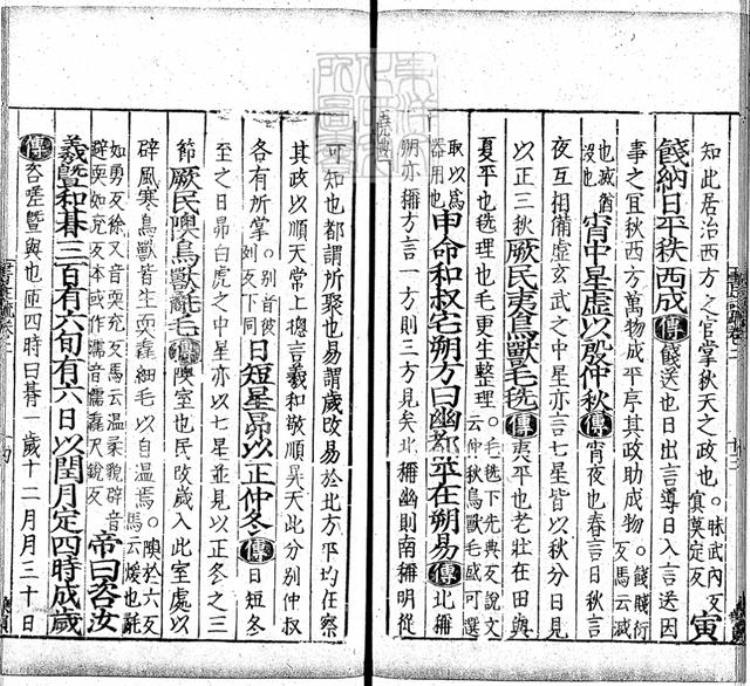 知此居治西方之官掌秋天之政也。昧武內反冥莫定反寅
餞納日平秩西成傳餞送也日出言導日入言送因
事之宜秋西方萬物成平序其政助成物。餞賤衍反馬云滅
也滅猶沒也宵中星虛以殷仲秋傳宵夜也春言日秋言
夜互相備虛玄武之中星亦言七星皆以秋分日見
以正三秋厥民夷鳥獸毛毨傳夷平也老壯在田與
夏平也毨理也毛更生整理。毛毨下先典反說文云仲秋鳥獸毛盛可選
取以爲器用也申命和叔宅朔方曰幽都平在朔易傳北稱
朔亦稱方言一方則三方見矣北稱幽則南稱明從
可知也都謂所聚也易謂歲改易於北方平均在察
其政以順天常上揔言羲和敬順昊天此分別仲叔
各有所掌。別首彼列反下同日短星昴以正仲冬傳日短冬
至之日昴白虎之中星亦以七星並見以正冬之三
節厥民隩鳥獸氄毛傳隩室也民改歲入此室處以
辟風寒鳥獸皆生耎毳細毛以自温焉。隩於六反馬云煖也氄
如勇反徐又音耎充反馬云温柔貌辟音避耎如兗反本或作濡音儒毳尺銳反帝曰咨汝
羲暨和朞三百有六旬有六日以閏月定四時成歲
傳咨嗟暨與也匝四時曰朞一歲十二月月三十日